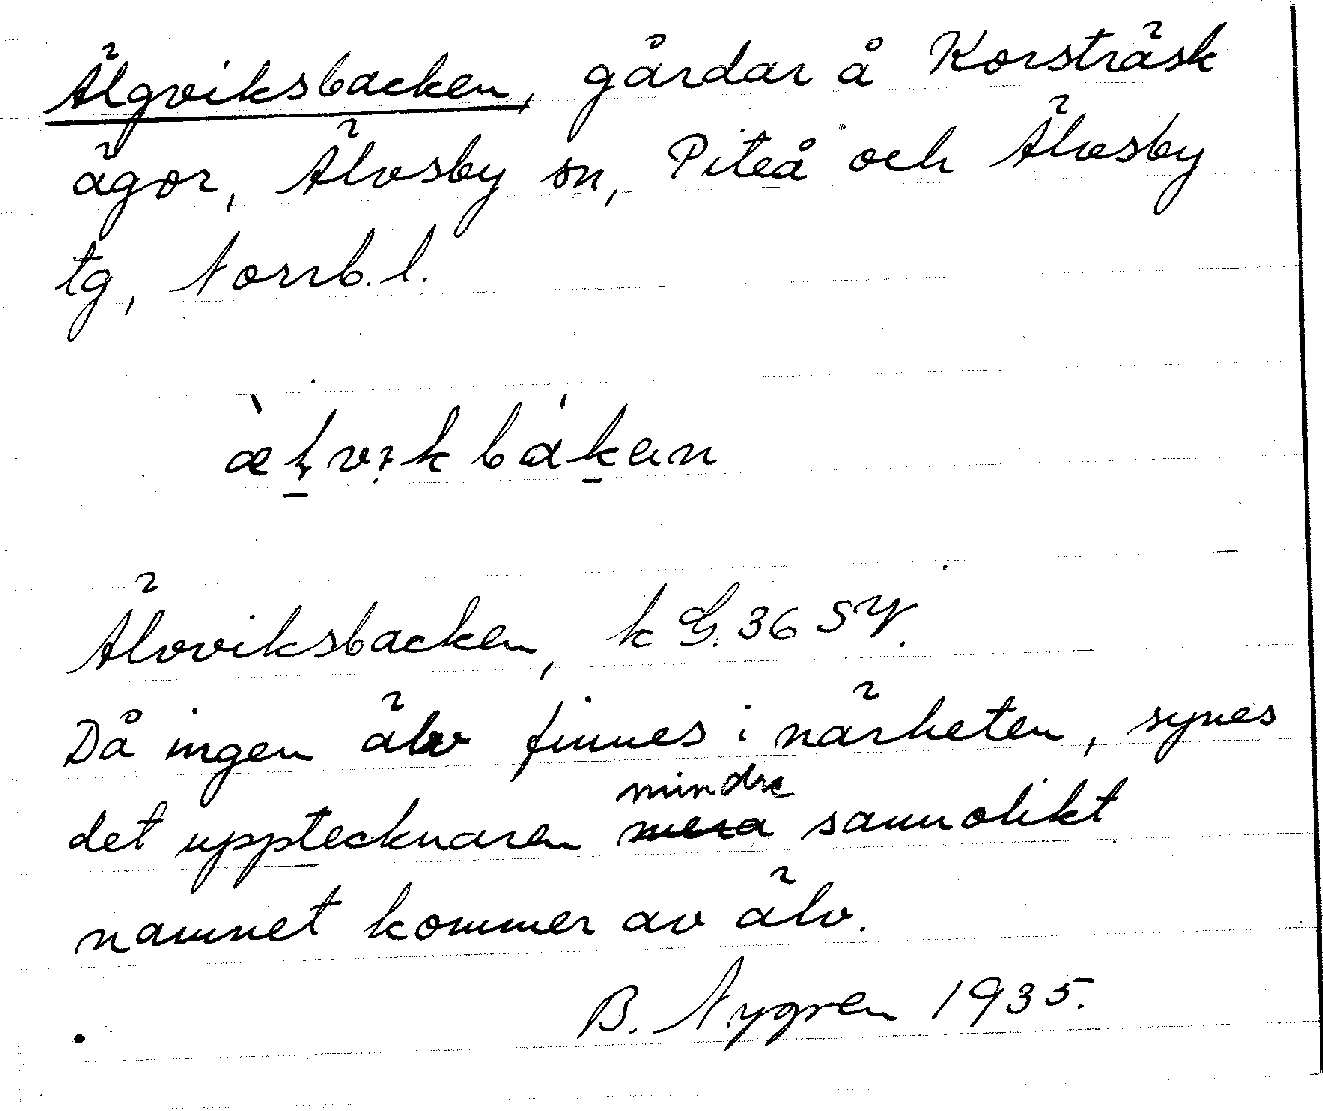 Älgviksbacken, gårdar å Korsträsk
ägor, Älvsby sn, Piteå och Älvsby
tg, Norrb. l.
Älvviksbacken, k G. 36 SV.
Då ingen älv finnes i närheten, synes
det upptecknaren mindre sannolikt
namnet kommer av älv.
B. Nygren 1935.